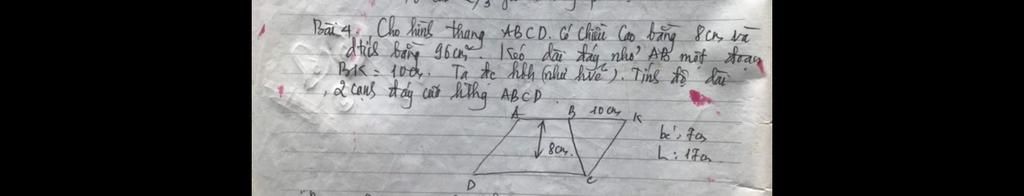 Bài 4. Cho hình thang ABCD. Có chiều cao bằng 8cm và
dtích bằng 96cm². Kéo dài đáy nhỏ AB một đoạn
BK = 10cm. Ta đc hbh (như hvẽ). Tính độ dài
2 cạnh đáy của hthg ABCD
A B 10cm K
8cm.
bé: 7cm
L: 17cm
D C